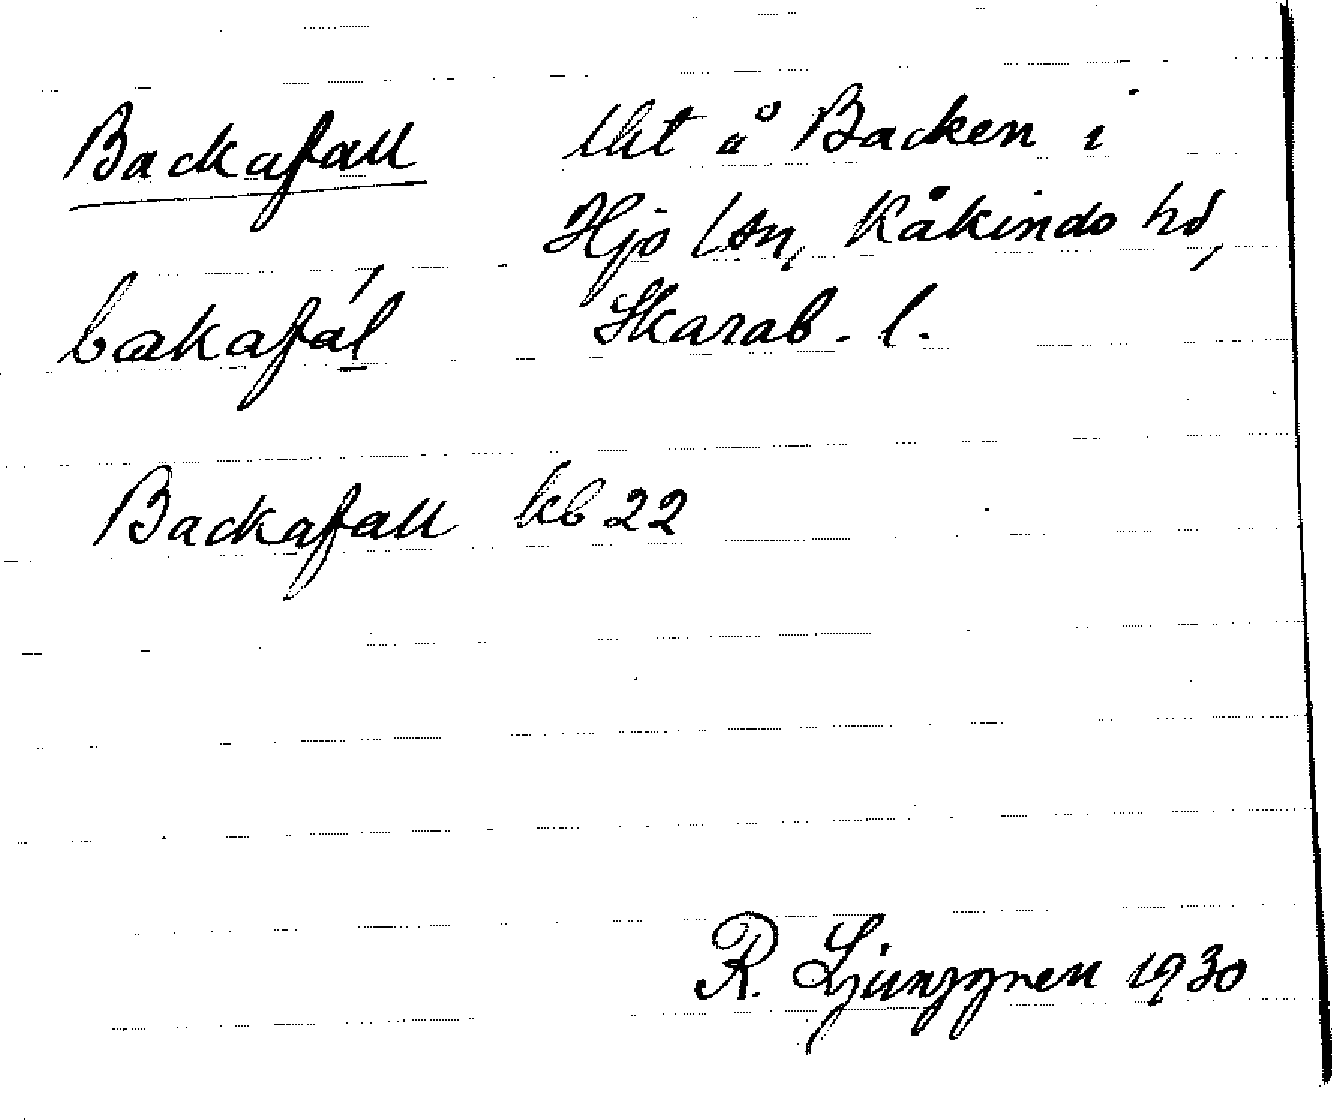 Backafall lht å Backen i
Hjo lsn, Kåkinds hd,
bakafál Skarab. l.
Backafall kb 22
R. Ljunggren 1930